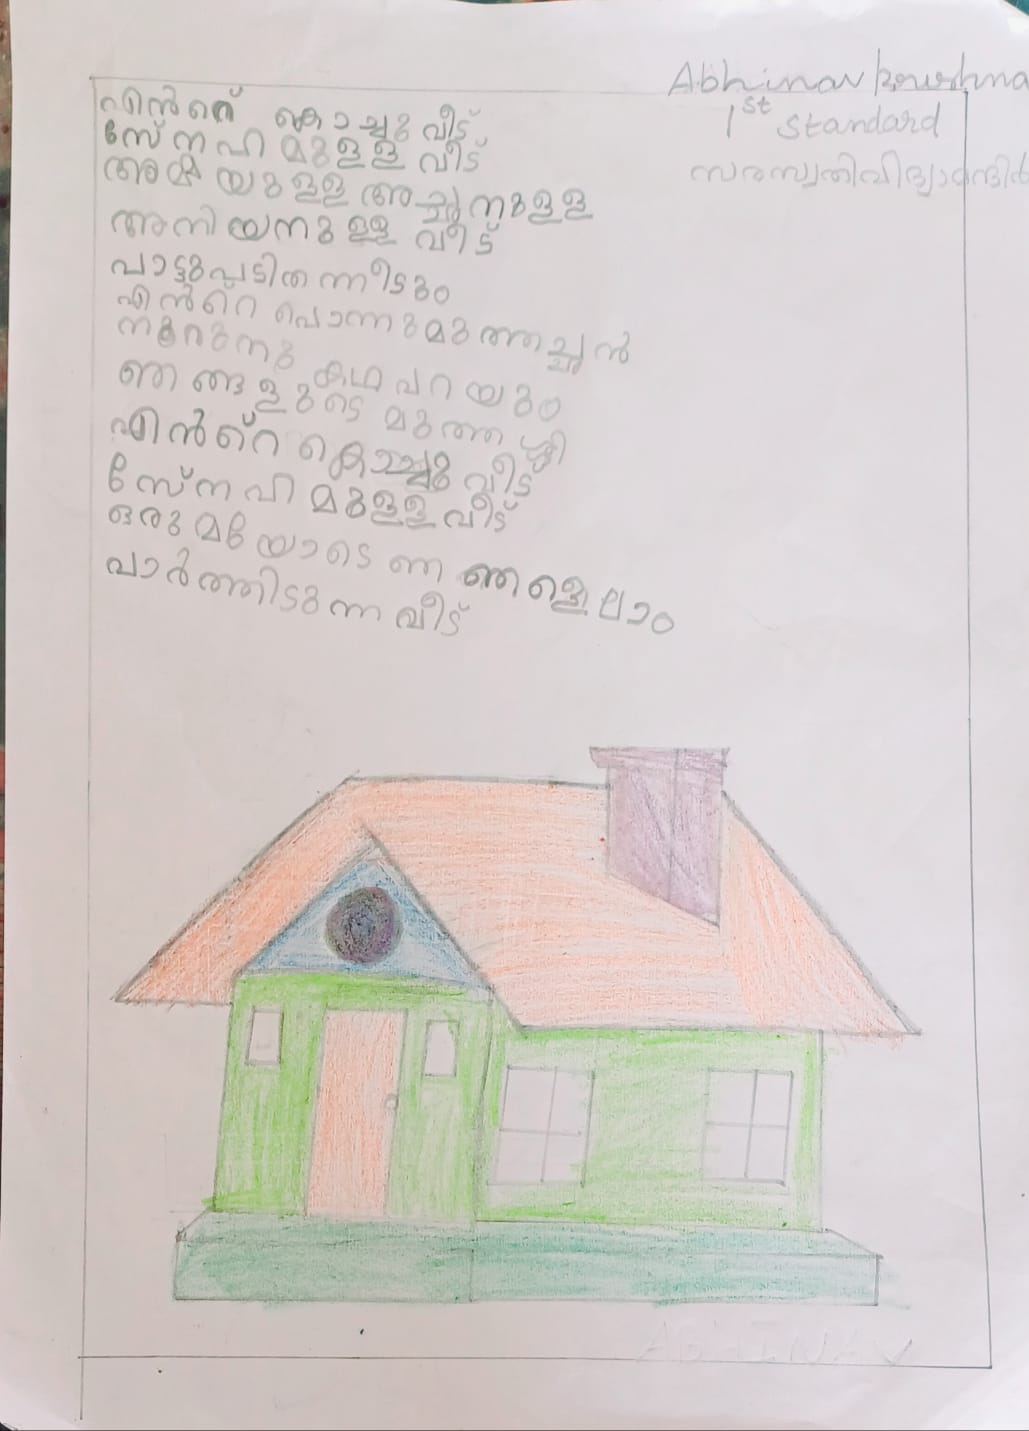 Abhinav krushna
1st Standard
സരസ്വതിവിദ്യാമന്ദിർ
എൻറെ കൊച്ചു വീട്
സ്നേഹമുള്ള വീട്
അമ്മയുള്ള അച്ഛനുള്ള
അനിയനുള്ള വീട്
പാട്ടുപടിതന്നീടും
എൻറെ പൊന്നുമുത്തച്ഛൻ
നൂറുനൂറു കഥ പറയും
ഞങ്ങളുടെ മുത്തശ്ശി
എൻറെ കൊച്ചു വീട്
സ്നേഹമുള്ള വീട്
ഒരുമയോടെ
പാർത്തിടുന്ന വീട്
ABHINAV